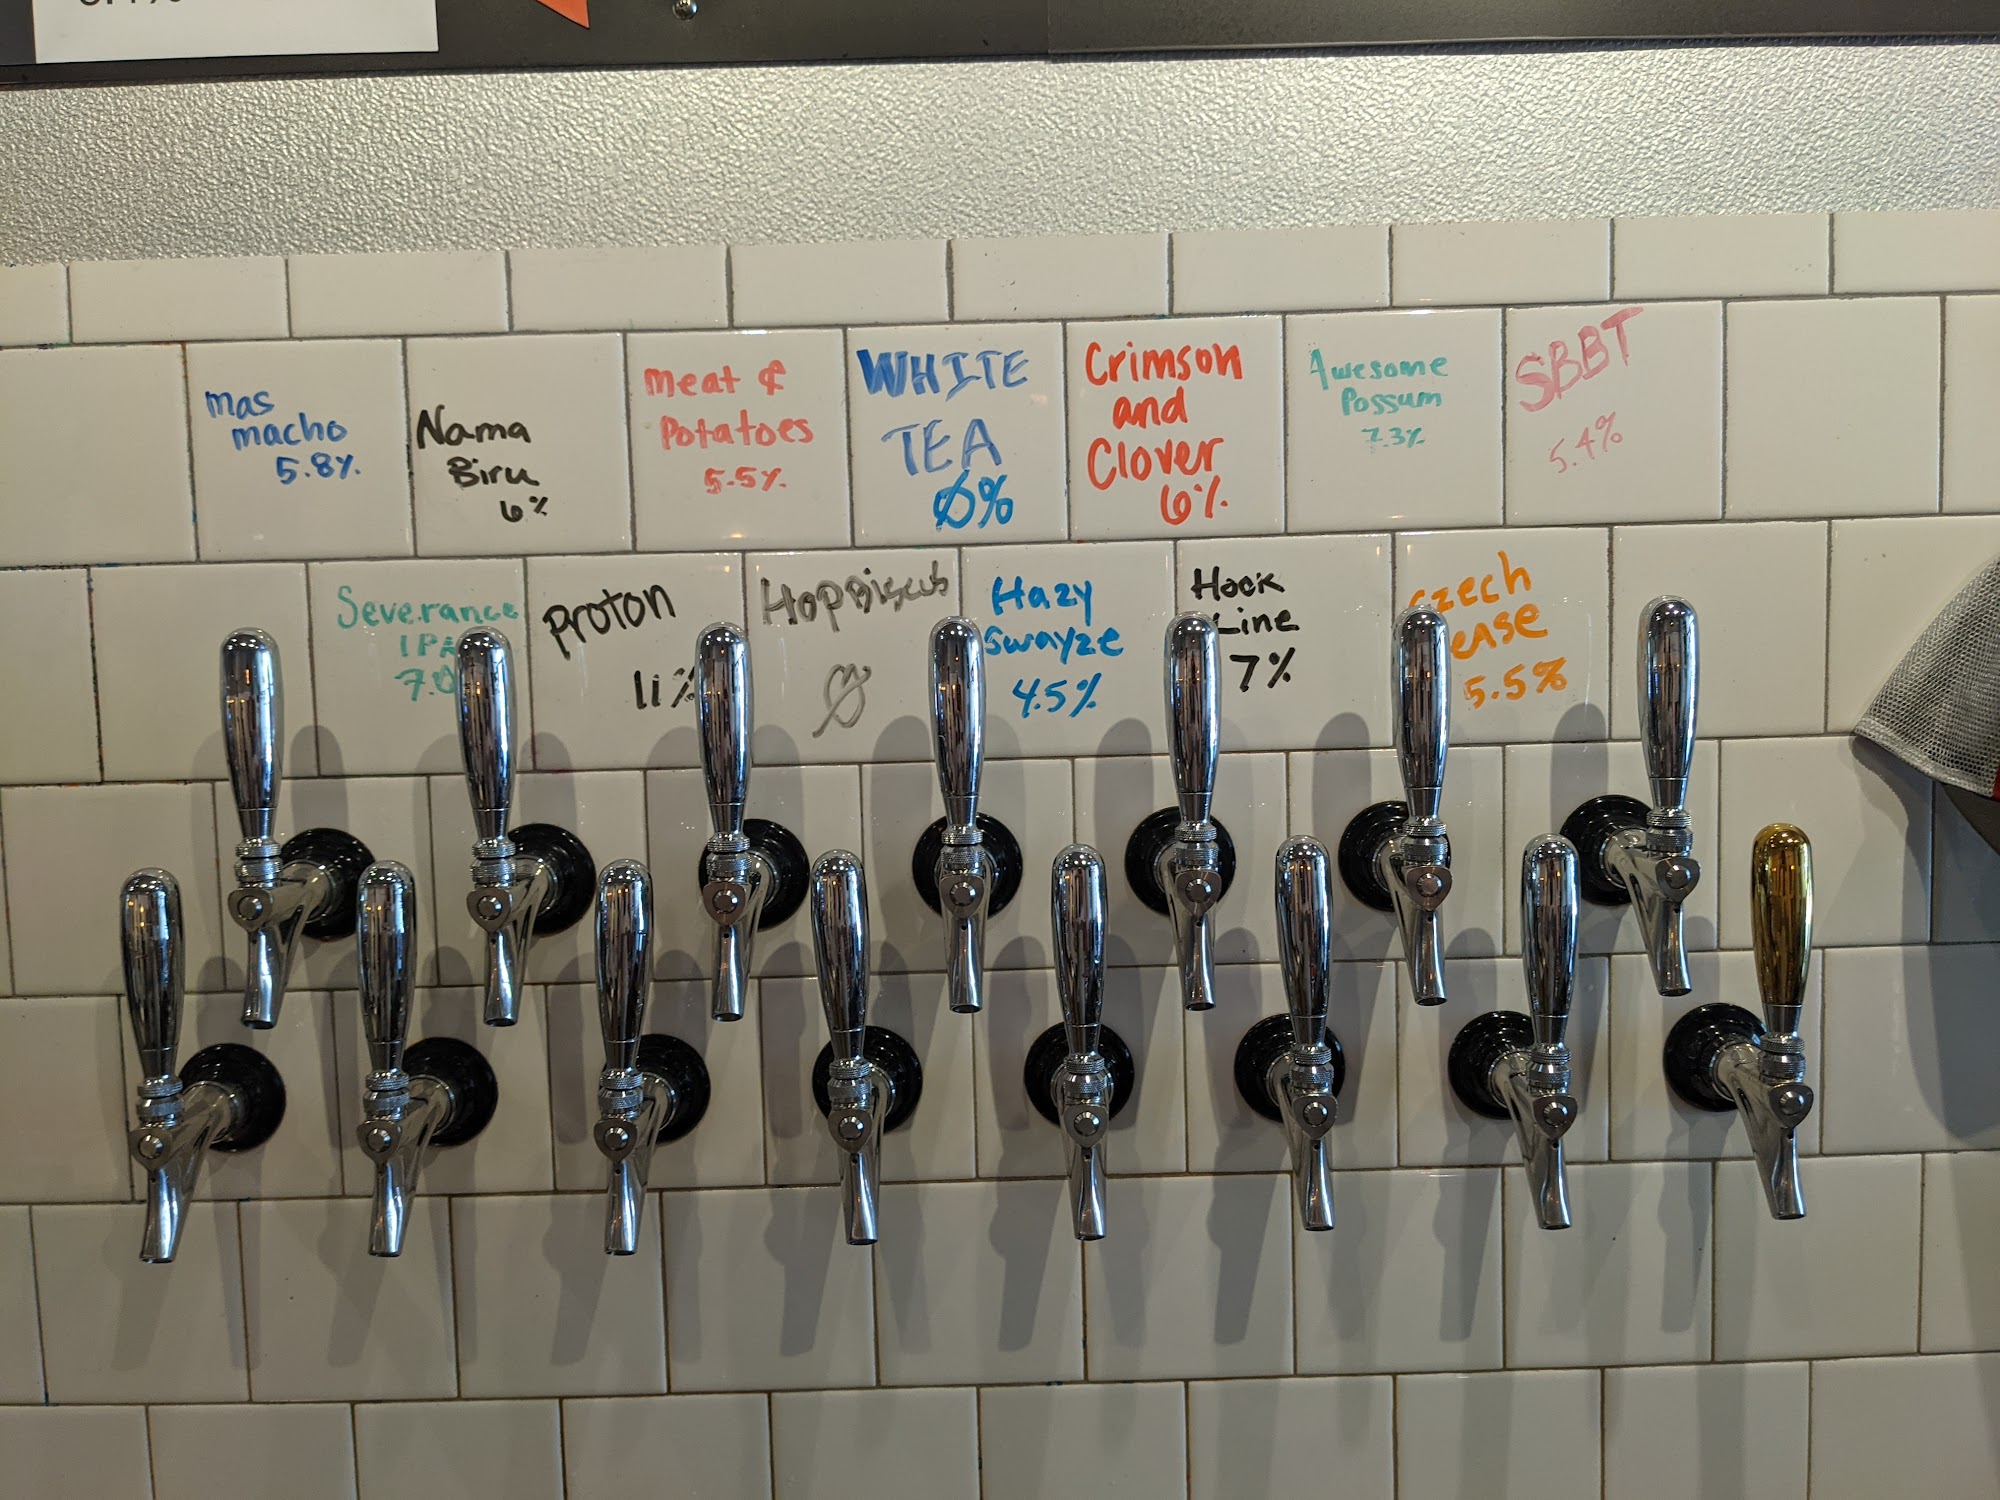 mas
macho
5.8%
Nama
Biru
6%
Meat &
Potatoes
5.5%
WHITE
TEA
0%
Crimson
and
Clover
6%
Awesome
Possum
7.3%
SBBT
5.4%
Severance
IPA
7.0
proton
11%
HopBiscus
Hazy
Swayze
4.5%
Hook
Line
7%
Czech
ense
5.5%